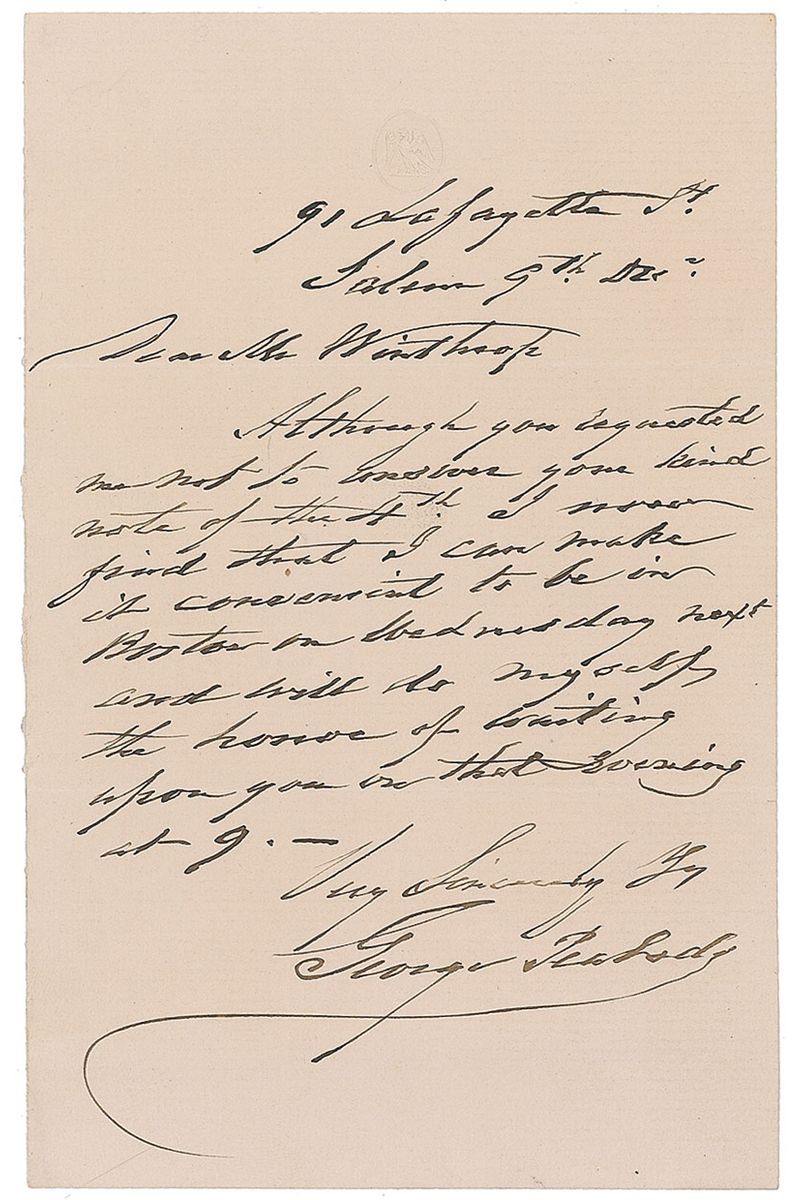 91 Lafayette St.
Salem 9th Decr.
Dear Mr Winthrop
Although you requested
me not to answer your kind
note of the 4th. I now
find that I can make
it convenient to be in
Boston on Wednesday next
and will do myself
the honor of waiting
upon you on that evening
at 9. —
Very Sincerely Yr
George Peabody